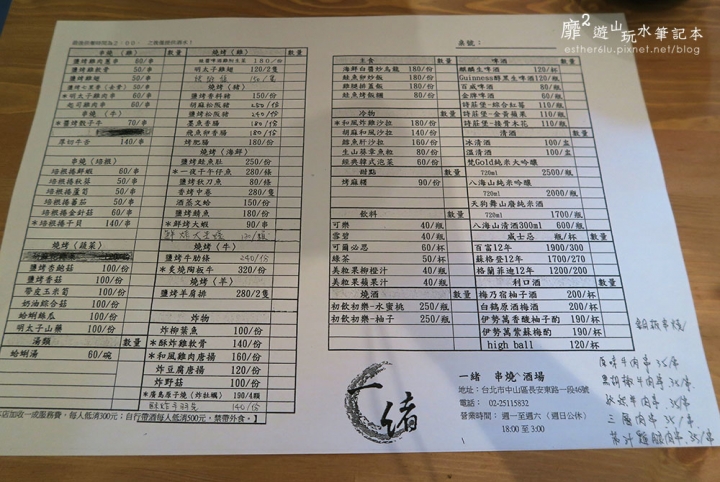 靡2遊山玩水筆記本
estherelu.pixnet.net/blog
桌號：
串燒（雞） 數量
鹽烤雞肉蔥串 60/串
鹽烤雞軟骨 50/串
鹽烤雞翅 50/串
＊明太子雞肉串 60/串
起司雞肉串 60/串
串燒（牛） 數量
＊鹽烤骰子牛 70/串
厚切牛舌 140/串
串燒（培根） 數量
培根捲鮮蝦 60/串
培根捲秋葵 50/串
培根捲蘆筍 50/串
培根捲蕃茄 50/串
培根捲金針菇 60/串
＊培根捲干貝 140/串
燒烤（蔬菜） 數量
鹽烤杏鮑菇 100/份
鹽烤香菇 100/份
帶皮玉米筍 100/份
奶油綜合菇 100/份
蛤蜊絲瓜 100/份
明太子山藥 100/份
湯類 數量
蛤蜊湯 60/碗
燒烤（雞） 數量
明太子雞翅 120/2隻
燒烤（豬）
鹽烤香料豬 180/份
胡麻松阪豬
鹽烤松阪豬
墨魚香腸 180/份
飛魚卵香腸 180/份
烤肥腸 180/份
燒烤（海鮮）
鹽烤鮭魚肚 250/份
＊一夜干午仔魚 280/條
鹽烤秋刀魚 80/份
香烤中卷 280/隻
酒蒸文蛤 150/份
鹽烤鯖魚 180/份
＊鮮烤大蝦 90/串
燒烤（牛） 數量
鹽烤牛肋條 240/份
＊炙燒陶板牛 320/份
燒烤（羊） 數量
鹽烤羊肩排 280/2隻
炸物 數量
炸柳葉魚 100/份
＊酥炸雞軟骨 140/份
＊和風雞肉唐揚 160/份
炸豆腐唐揚 120/份
炸野菇 100/份
＊廣島原子燒（炸牡蠣） 190/4顆
140/份
本店加收一成服務費，每人低消300元；自行帶酒每人低消500元，禁帶外食。】
主食 數量
海鮮白醬炒烏龍 180/份
鮭魚卵炒飯 180/份
雞腿排蓋飯 180/份
鮭魚烤飯糰 80/份
冷物 數量
＊和風炸雞沙拉 180/份
胡麻和風沙拉 140/份
鱈魚肝沙拉 160/份
生山葵章魚粒 80/份
經典韓式泡菜 60/份
甜點 數量
烤麻糬 90/份
飲料 數量
可樂 40/瓶
雪碧 40/瓶
可爾必思 60/杯
綠茶 50/杯
美粒果柳橙汁 40/瓶
美粒果蘋果汁 40/瓶
燒酒 數量
初飲初樂-水蜜桃 250/瓶
初飲初樂-柚子 250/瓶
啤酒 數量
麒麟生啤酒 120/杯
Guinness醇黑生啤酒 120/瓶
百威啤酒 60/瓶
金牌啤酒 60/瓶
詩莊堡-綜合紅莓 110/瓶
詩莊堡-金黃蘋果 110/瓶
詩莊堡-接骨木花 110/瓶
清酒 數量
冰清酒 100/盅
溫清酒 100/盅
梵Gold純米大吟釀
720ml 2500/瓶
八海山純米吟釀
720ml 2000/瓶
天狗舞山廢純米酒
720ml 1700/瓶
八海山清酒300ml 600/瓶
威士忌 瓶/杯 數量
百富12年 1900/300
蘇格登12年 1700/270
格蘭菲迪12年 1200/200
利口酒 數量
梅乃宿柚子酒 200/杯
白鶴原酒梅酒 200/杯
伊勢萬香酸柚子酌 190/杯
伊勢萬紫蘇梅酌 190/杯
high ball 120/杯
一緒
一緒 串燒 酒場
地址：台北市中山區長安東路一段46號
電話： 02-25115832
營業時間：週一至週六（週日公休）
18:00至3:00
原味牛肉串 35/串
黑胡椒牛肉串 35/串